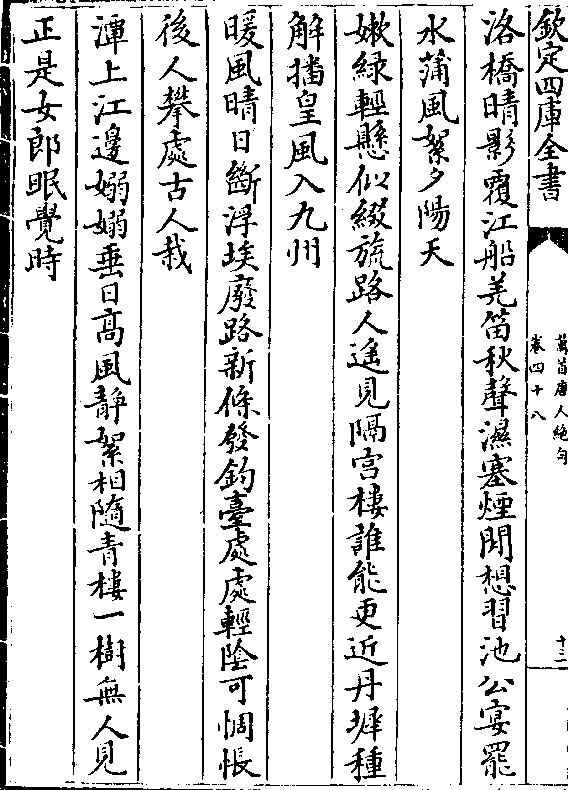 欽定四庫全書
萬首唐人絶句
卷四十八
十三
洛橋晴影覆江船羌笛秋聲濕塞煙閒想習池公宴罷
水蒲風絮夕陽天
嫩緑輕懸似綴旒路人遥見隔宫樓誰能更近丹墀種
解播皇風入九州
暖風晴日斷浮埃廢路新條發釣臺處處輕陰可惆悵
後人攀處古人栽
潭上江邊嫋嫋垂日高風靜絮相隨青樓一樹無人見
正是女郎眠覺時